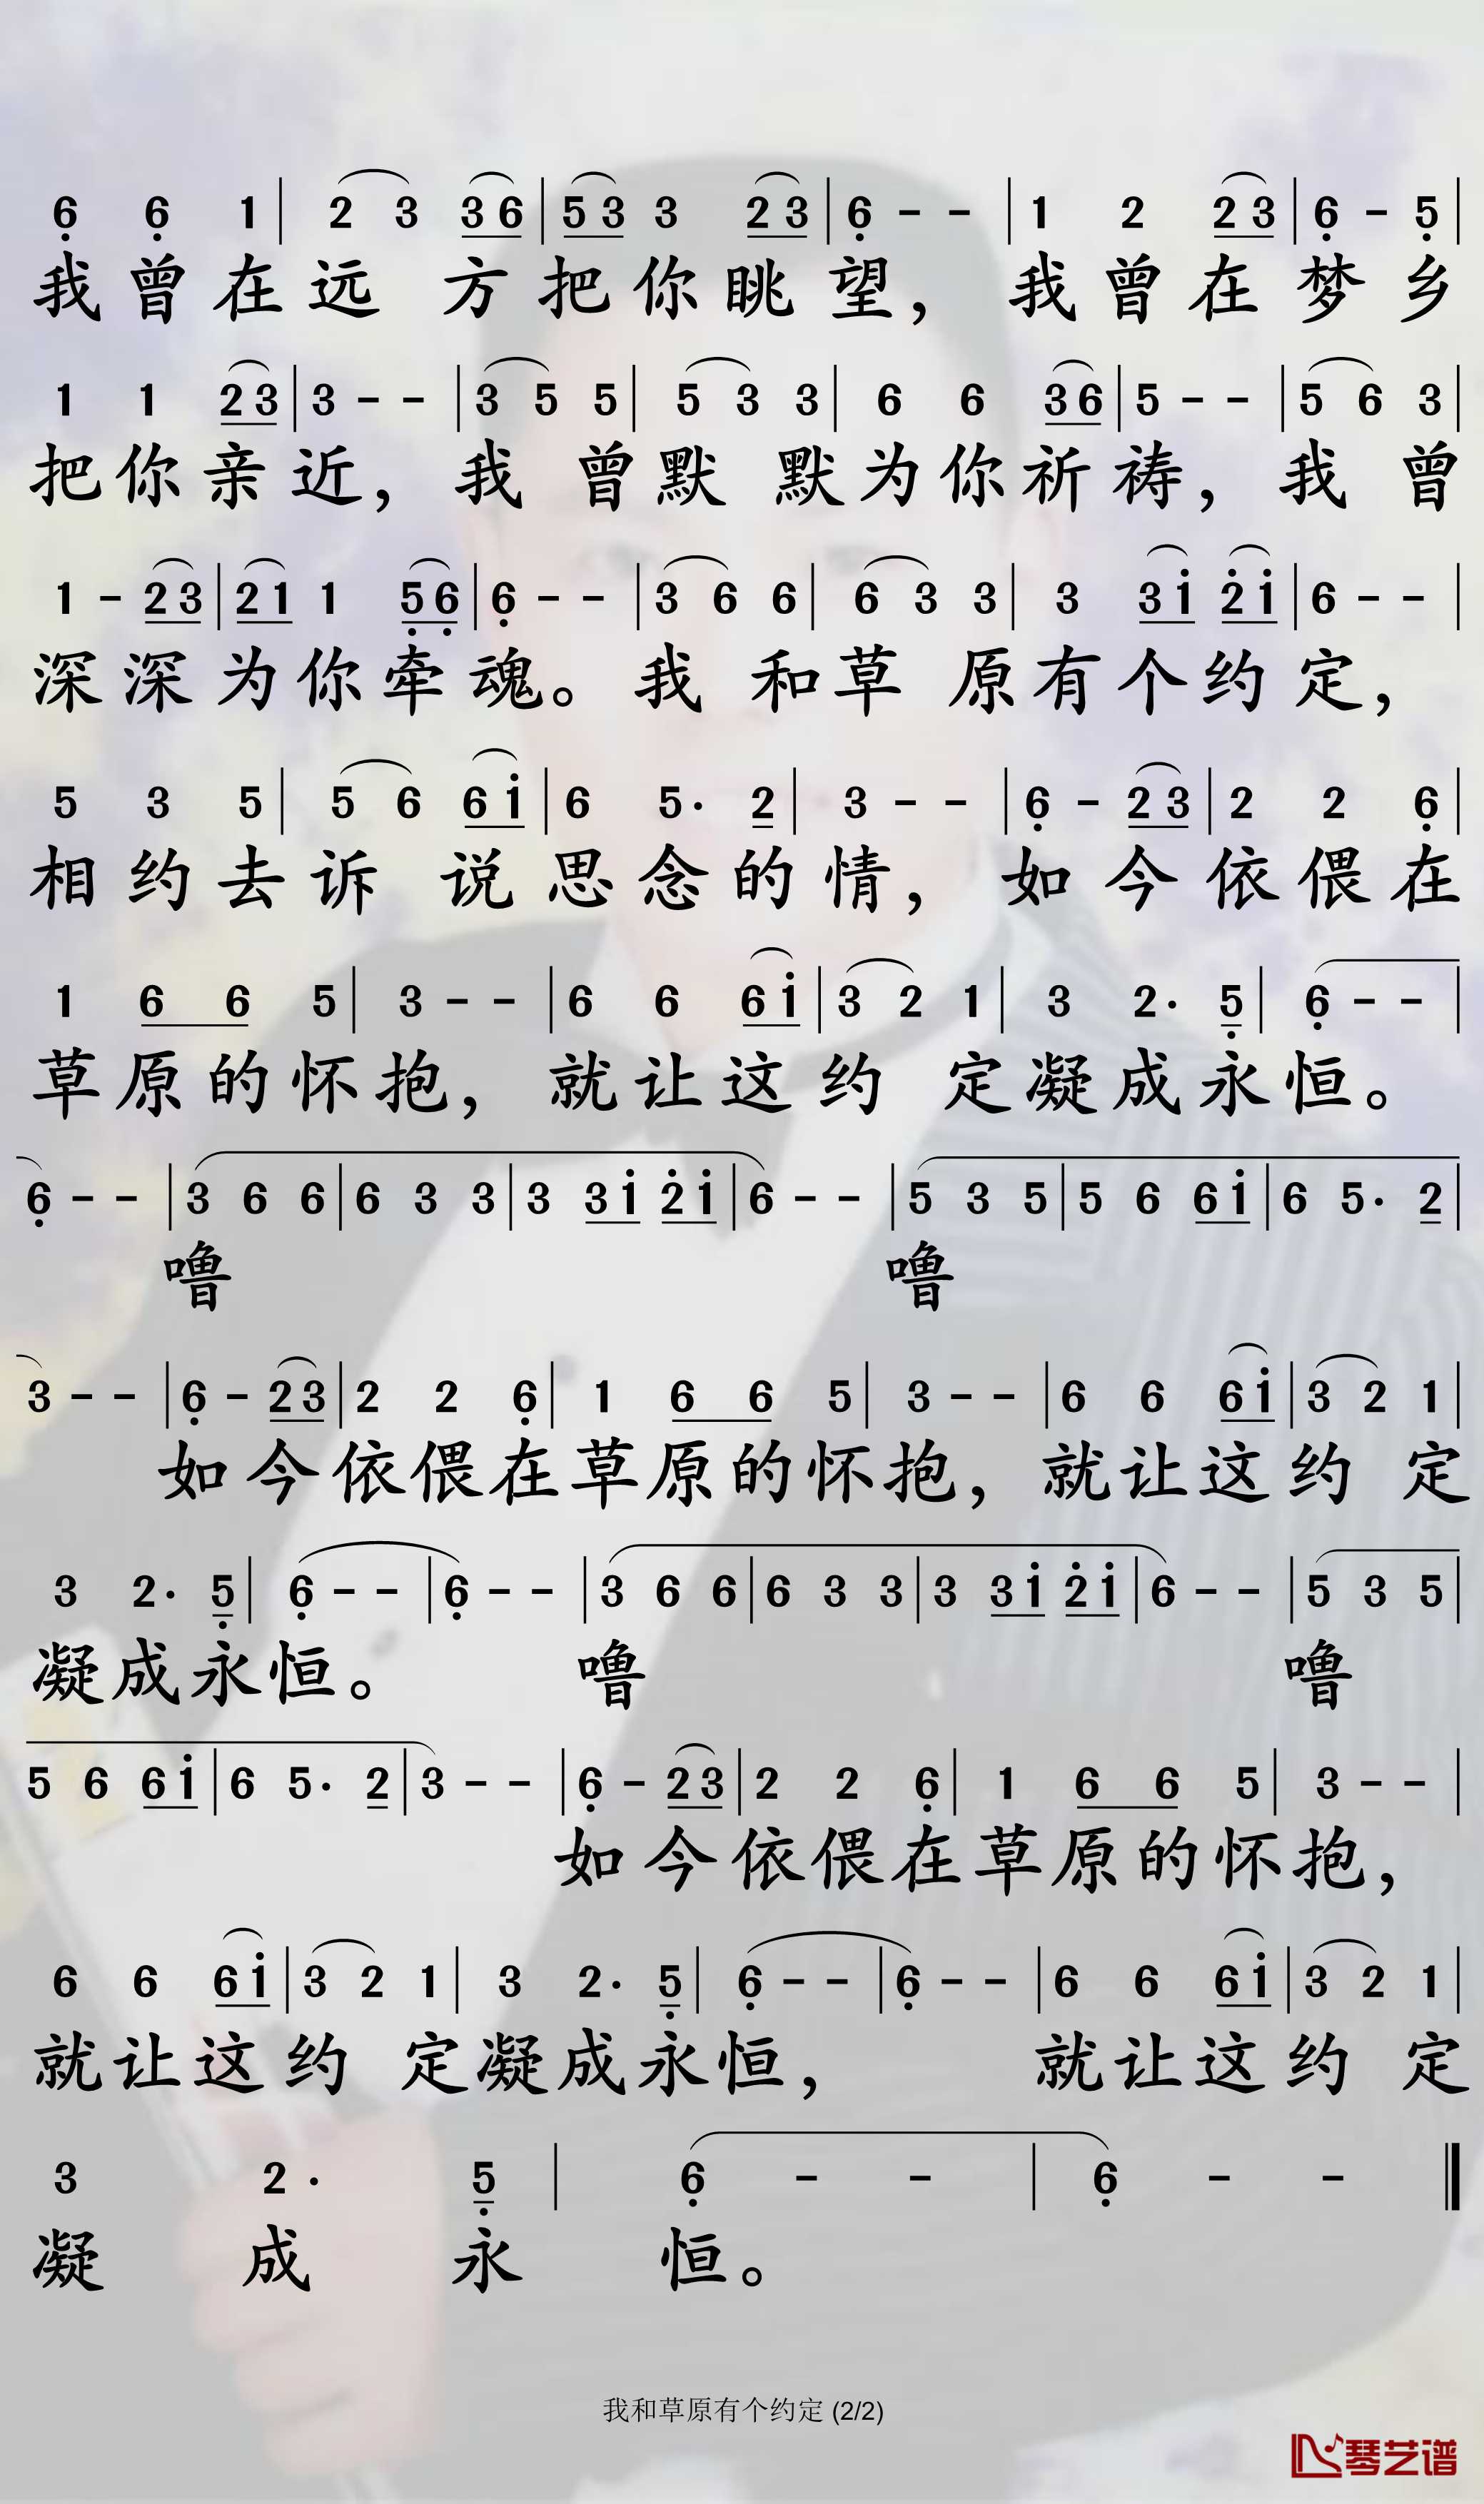 6̣ 6̣ 1 | 2 3 3 6 | 5 3 3 2 3 | 6̣ - - | 1 2 2 3 | 6̣ - 5̣ |
我曾在远 方把你眺望，我曾在梦乡
1 1 2 3 | 3 - - | 3 5 5 | 5 3 3 | 6 6 3 6 | 5 - - | 5 6 3 |
把你亲近，我 曾默 默为你祈祷，我 曾
1 - 2 3 | 2 1 1 5̣ 6̣ | 6̣ - - | 3 6 6 | 6 3 3 | 3 3 1̇ 2̇ 1̇ | 6 - - |
深深为你牵魂。我 和草 原有个约定，
5 3 5 | 5 6 6 1̇ | 6 5. 2 | 3 - - | 6̣ - 2 3 | 2 2 6̣ |
相约去诉 说思念的情，如今依偎在
1 6 6 5 | 3 - - | 6 6 6 1̇ | 3 2 1 | 3 2. 5̣ | 6̣ - - |
草原的怀抱，就让这约 定凝成永恒。
6̣ - - | 3 6 6 | 6 3 3 | 3 3 1̇ 2̇ 1̇ | 6 - - | 5 3 5 | 5 6 6 1̇ | 6 5. 2 |
噜 噜
3 - - | 6̣ - 2 3 | 2 2 6̣ | 1 6 6 5 | 3 - - | 6 6 6 1̇ | 3 2 1 |
如今依偎在草原的怀抱，就让这约 定
3 2. 5̣ | 6̣ - - | 6̣ - - | 3 6 6 | 6 3 3 | 3 3 1̇ 2̇ 1̇ | 6 - - | 5 3 5 |
凝成永恒。 噜 噜
5 6 6 1̇ | 6 5. 2 | 3 - - | 6̣ - 2 3 | 2 2 6̣ | 1 6 6 5 | 3 - - |
如今依偎在草原的怀抱，
6 6 6 1̇ | 3 2 1 | 3 2. 5̣ | 6̣ - - | 6̣ - - | 6 6 6 1̇ | 3 2 1 |
就让这约 定凝成永恒， 就让这约 定
3 2. 5̣ | 6̣ - - | 6̣ - - ‖
凝 成 永 恒。
我和草原有个约定 (2/2)
琴艺谱